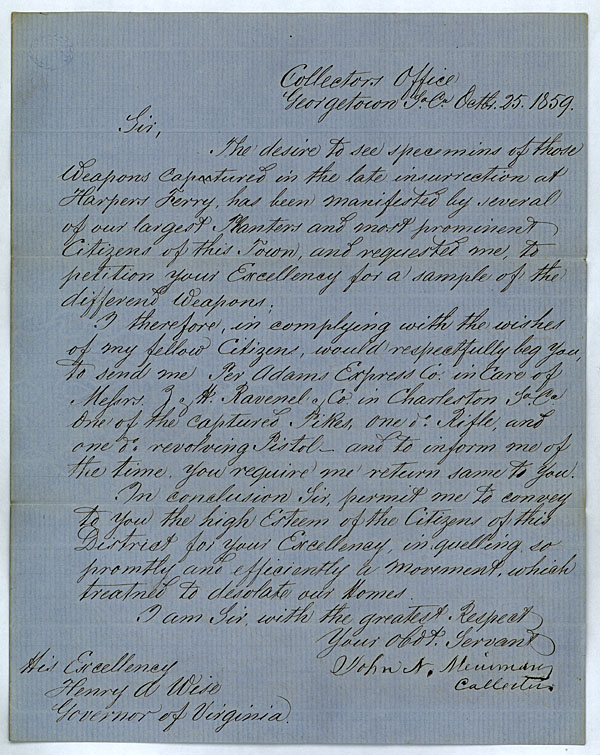 Collectors Office
Georgetown So. Ca. Octbr. 25. 1859.
Sir,
The desire to see specimins of those
Weapons captured in the late insurrection at
Harpers Ferry, has been manifested by several
of our largest Planters and most prominent
Citizens of this Town, and requested me, to
petition your Excellency for a sample of the
differend Weapons.
I therefore, in complying with the wishes
of my fellow Citizens, would respectfully beg You,
to send me Per Adams Express Co. in Care of
Messrs. & H. Ravenel & Co in Charleston So. Ca
One of the captured Pikes, one do. Rifle, and
one do. revolving Pistol — and to inform me of
the time. you require me return same to You.
In conclusion Sir, permit me to convey
to You the high Esteem of the Citizens of this
District for Your Excellency, in quelling so
promtly and efficiently a movement, which
treatned to desolate our homes.
I am Sir, with the greatest Respect
Your Obdt. Servant
John N.
Collector.
His Excellency
Henry A Wise
Governor of Virginia.